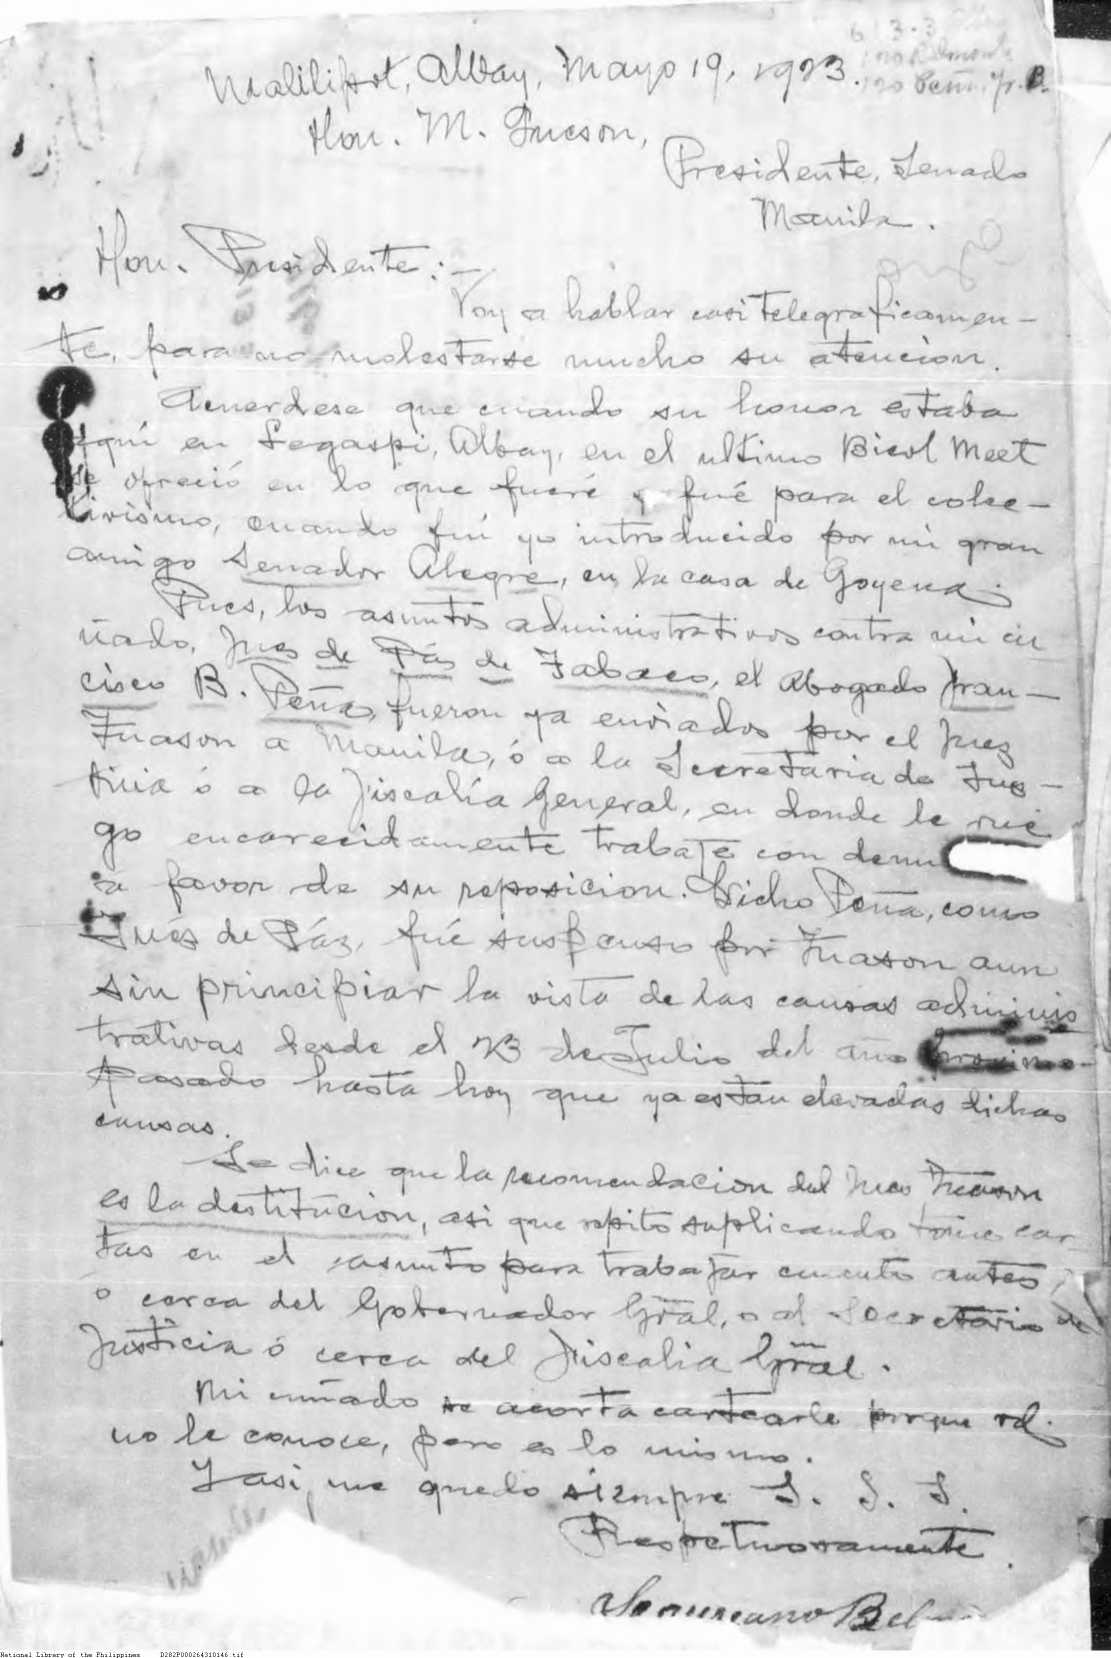 6 | 3-3
Malilipot, Albay, Mayo 19, 1923.
Hon. M. Quezon,
Presidente, Senado
Manila.
Hon. Presidente:—
Voy a hablar casi telegraficamen-
te, para no molestarse mucho su atencion.
Acuerdese que cuando su honor estaba
aqui en Legaspi, Albay, en el ultimo Bicol Meet
se ofreció en lo que fueré y fué para el colec-
tivismo, cuando fui yo introducido por mi gran
amigo Senador Alegre, en la casa de Goyena.
Pues, los asuntos administrativos contra mi cu
ñado, Jues de Pás de Tabaco, el Abogado Fran-
cisco B. Peña, fueron ya enviados por el Juez
Tuason a Manila, ó a la Secretaria de Jus-
ticia ó a la Fiscalía General, en donde le rue
go encarecidamente trabaje con denu
a favor de su reposicion. Dicho Peña, como
Juéz de Páz, fué suspenso por Tuason aun
sin principiar la vista de las causas adminis
trativas desde el 23 de Julio del año proximo-
pasado hasta hoy que ya están elevadas dichas
causas.
Se dice que la recomendacion del Jues Tuason
es la destitucion, asi que repito suplicando tome car-
tas en el asunto para trabajar cuanto antes,
ó cerca del Gobernador Gral, o al Secretario de
Justicia ó cerca del Fiscalia Gral.
Mi cuñado se acorta cartearle porque vd.
no le conoce, pero es lo mismo.
Y asi, me quedo siempre S. S. S.
Respetuosamente.